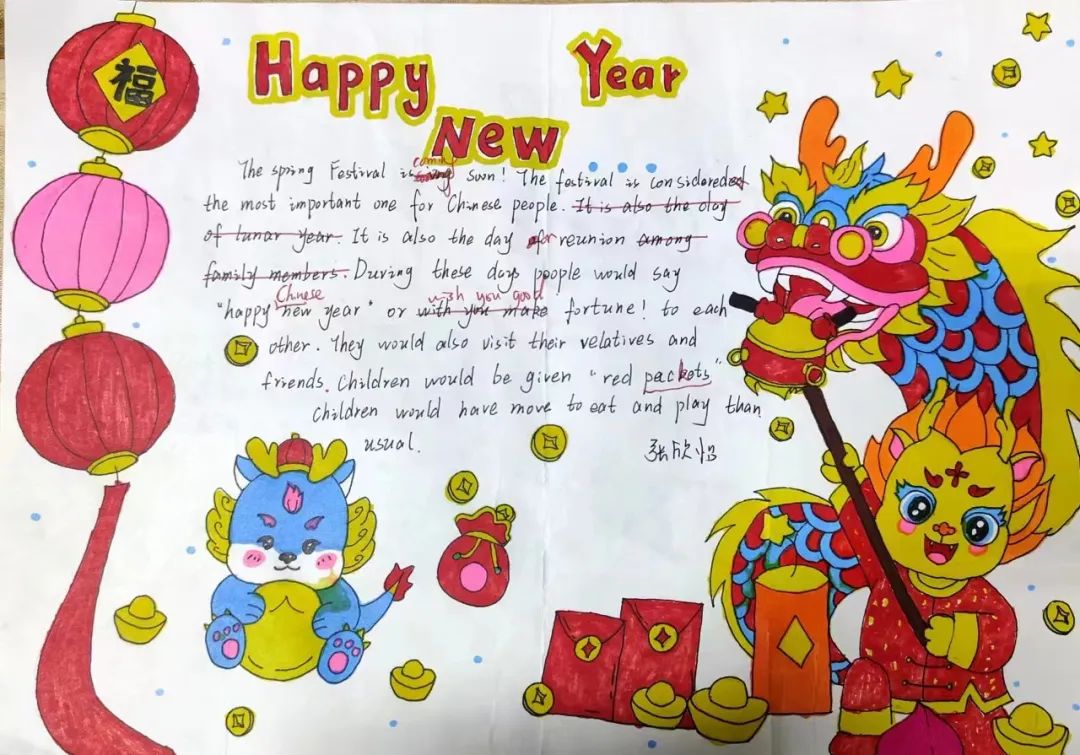 福
Happy New Year
The spring Festival is coming soon! The festival is considered
the most important one for Chinese people. It is also the day
of lunar year. It is also the day for reunion among
family members. During these days people would say
Chinese wish you good
"happy new year" or with you make fortune! to each
other. They would also visit their relatives and
friends. Children would be given "red packets"
Children would have move to eat and play than
usual.
张欣怡